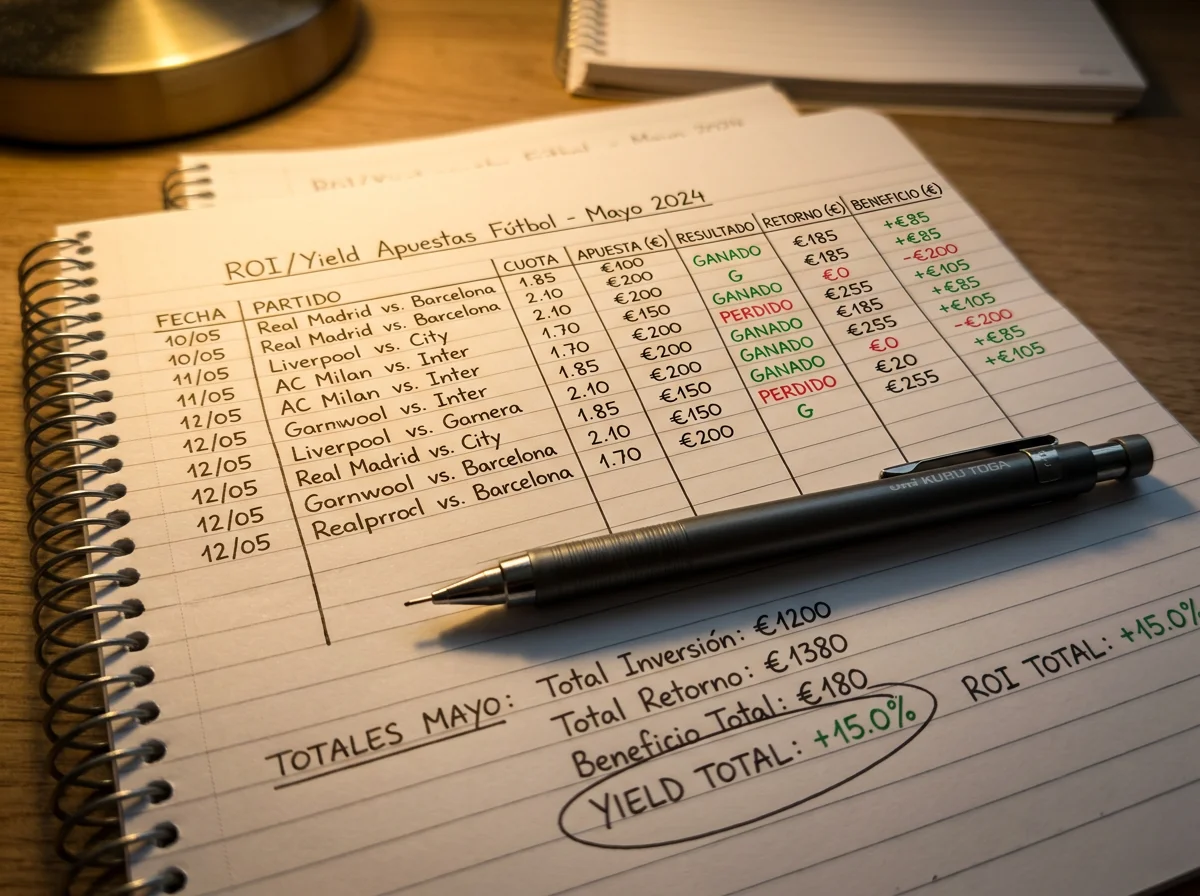 ROI/Yield Apuestas Fútbol - Mayo 2024
FECHA PARTIDO CUOTA APUESTA (€) RESULTADO RETORNO (€) BENEFICIO (€)
10/05 Real Madrid vs. Barcelona 1.85 €100 GANADO €185 +€85
10/05 Real Madrid vs. Barcelona 2.10 €200 G €185 +€85
11/05 Liverpool vs. City 2.10 €200 GANADO €0 -€200
11/05 AC Milan vs. Inter 1.70 €150 PERDIDO €255 +€105
12/05 AC Milan vs. Inter 1.70 €200 GANADO €185 +€85
12/05 Garnwool vs. Inter 1.85 €200 GANADO €255 +€105
12/05 Liverpool vs. Gamera 2.10 €200 GANADO €0 -€200
12/05 Real Madrid vs. City 1.85 €150 PERDIDO €20 +€85
12/05 Garnwool vs. Barcelona 2.10 €150 G €255 +€105
12/05 Realprrocl vs. Barcelona 1.70 €200
uni KUBU TOGA
TOTALES MAYO: Total Inversión: €1200
Total Retorno: €1380
Beneficio Total: €180
YIELD TOTAL: +15.0%
ROI TOTAL: +15.0%